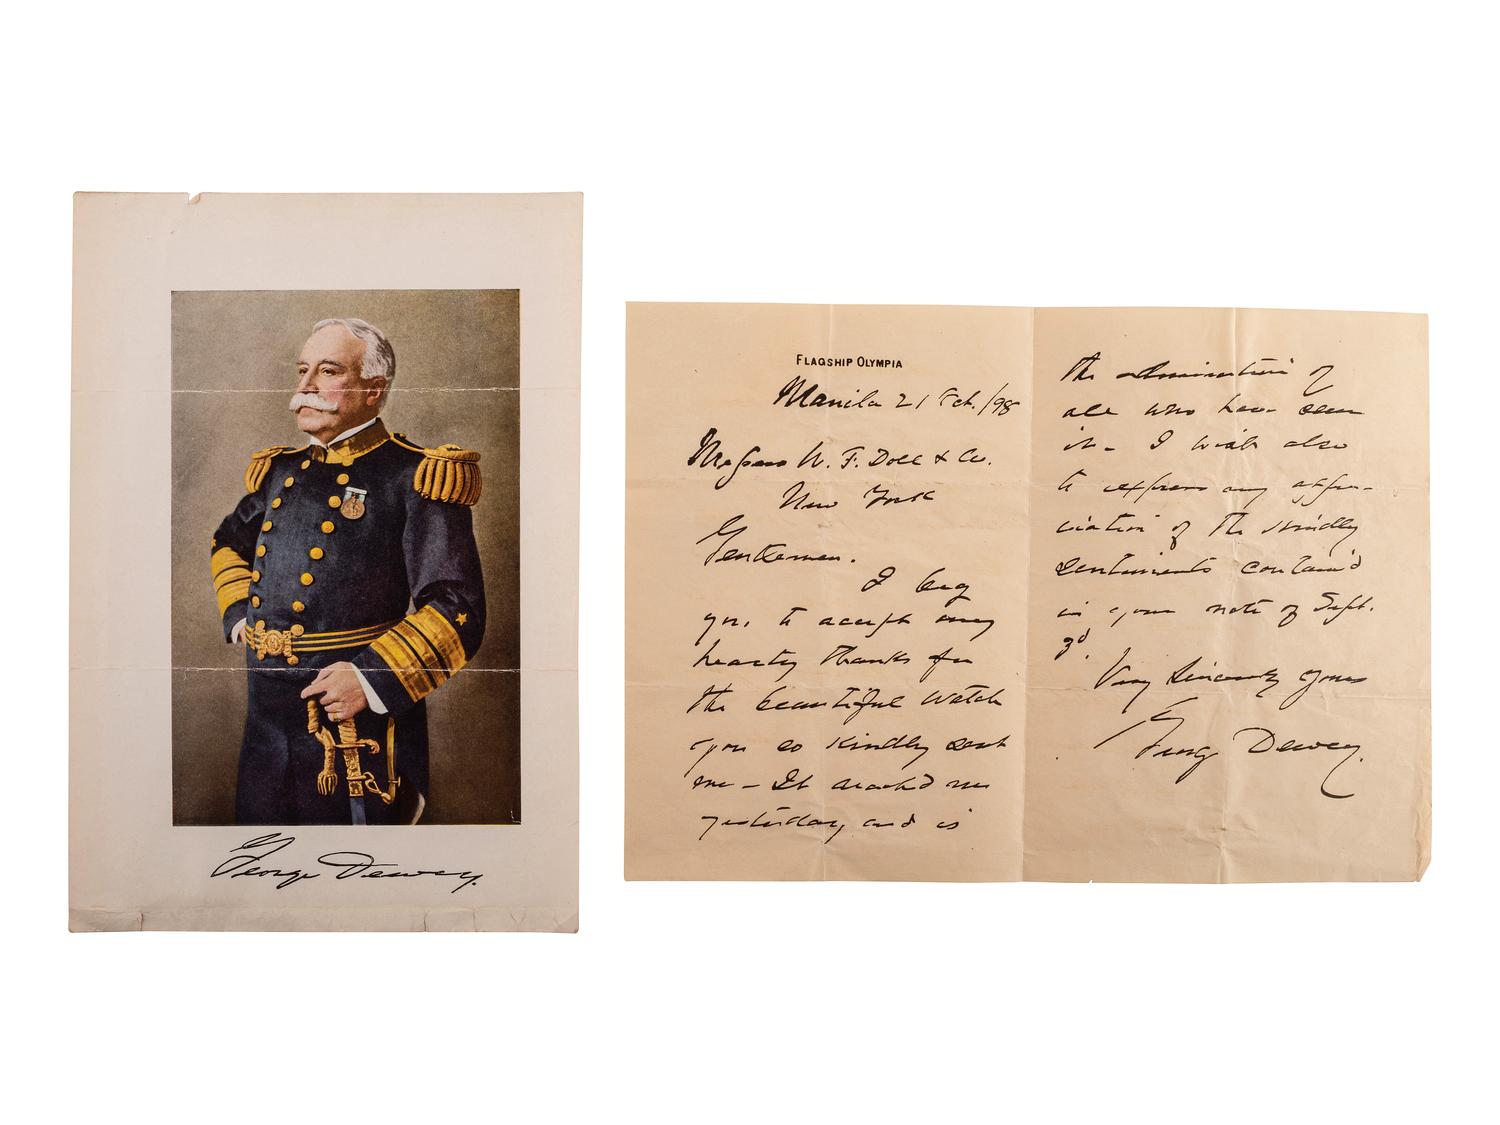 George Dewey.
FLAGSHIP OLYMPIA
Manila 21 Oct. /98
Messrs W. F. Doll & Co.
New York
Gentlemen.
I beg
you, to accept my
hearty thanks for
the beautiful watch
you so kindly sent
me – It reach'd me
yesterday and is
the admiration of
all who have seen
it – I wish also
to express my appre-
ciation of the kindly
sentiments contain'd
in your note of Sept.
3d.
Very Sincerely yours
George Dewey.